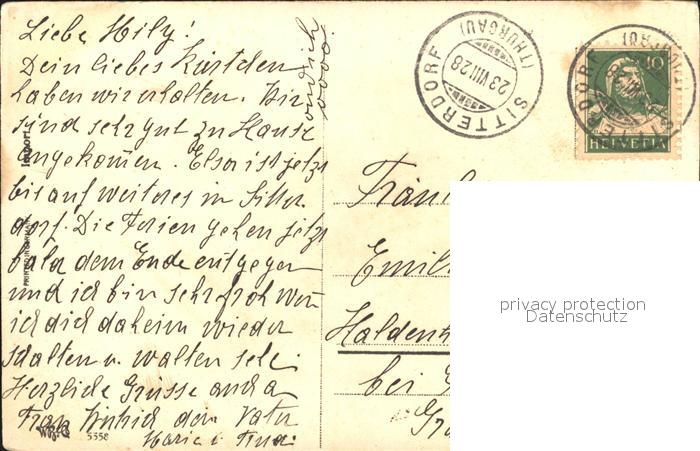 Liebe Hily!
Dein liebes Kärtchen
haben wir erhalten. Wir
sind sehr gut zu Hause
angekommen. Elsa ist jetzt
bis auf weiteres in Sitter-
dorf. Die Ferien gehen jetzt
bald dem Ende entgegen
und ich bin sehr froh wen
ich dich daheim wieder
schalten u. walten sehe
Herzliche Grüsse und a
dein Vater
Marie
Import
5558
SITTERDORF
(THURGAU)
23.VIII.28
SITTERDORF
10
HELVETIA
Fräul
Emil
Haldent
bei
privacy protection
Datenschutz